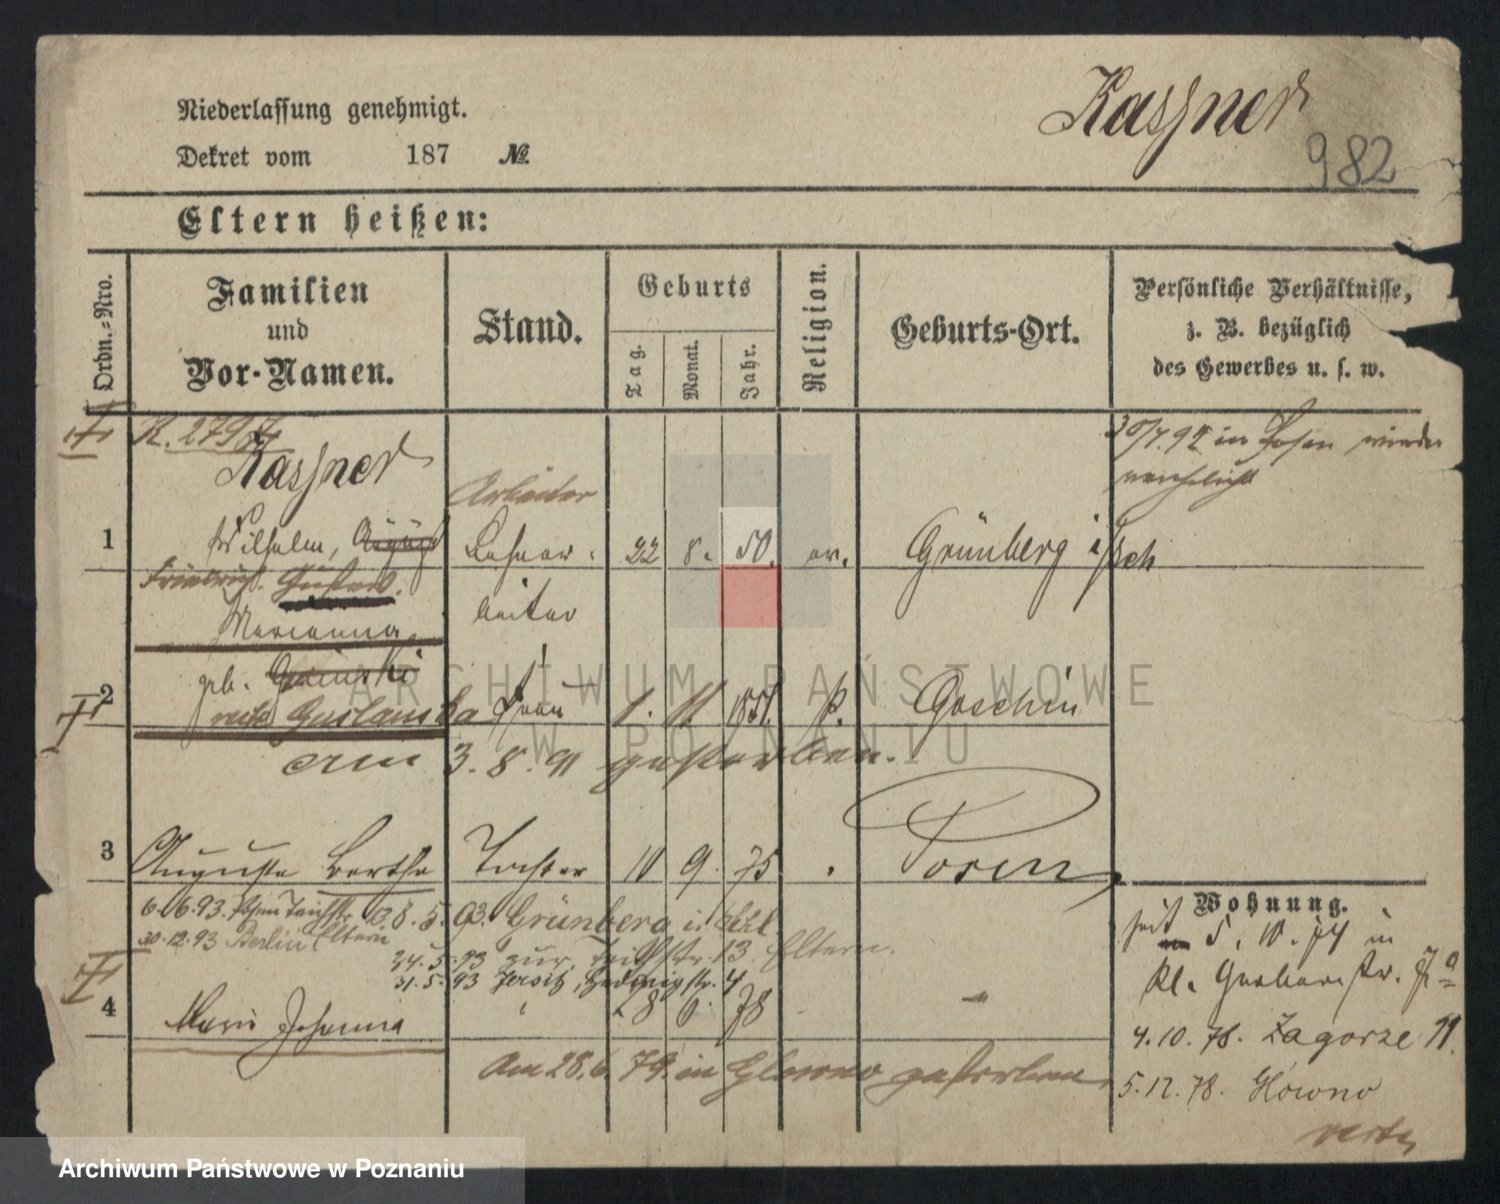 Niederlassung genehmigt.
Dekret vom 187 №
Kassner
982
Eltern heißen:
Ordn.-Nro.
Familien und Vor-Namen.
Stand.
Geburts
Tag.
Monat.
Jahr.
Religion.
Geburts-Ort.
Persönliche Verhältnisse,
z. B. bezüglich
des Gewerbes u. s. w.
Kassner
Arbeiter
30/7.94 in Posen wieder
verehelicht
1 Wilhelm, August 22 8. 50. ev. Grünberg i/Sch
Friedrich. Gustav.
Marianna,
2 geb. Frau 1. 11. 1851. k. Goschin
recte Guslanska
am 3.8.91 gestorben.
3 Auguste Bertha Tochter 10 9. 75 Posen
6.6.93. 13 8.5.93. Grünberg i. Schl.
30.12.93 Berlin Eltern
24.5.93 zur. 13 Eltern.
31.5.93 Jersitz, Hedwigstr. 4
4 Marie Johanna 28 6. 78 "
Am 28.6.79. in Glowno gestorben.
Wohnung.
seit 5.10.74 in
Kl. Gerberstr. 7a
4.10.78. Zagorze 11.
5.12.78. Glówno
verte
ARCHIWUM PAŃSTWOWE
W POZNANIU
Archiwum Państwowe w Poznaniu